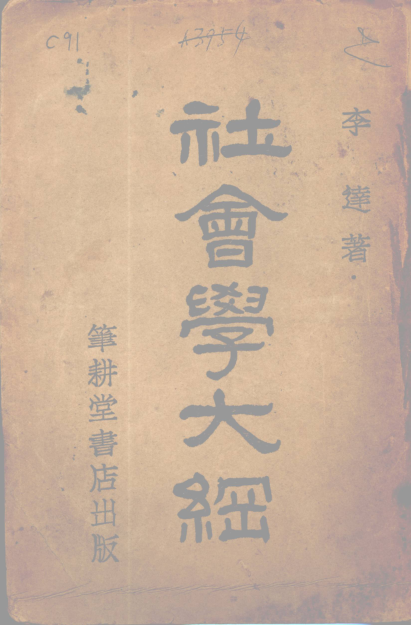 C91
A3954
李達著
社會學大綱
筆耕堂書店出版